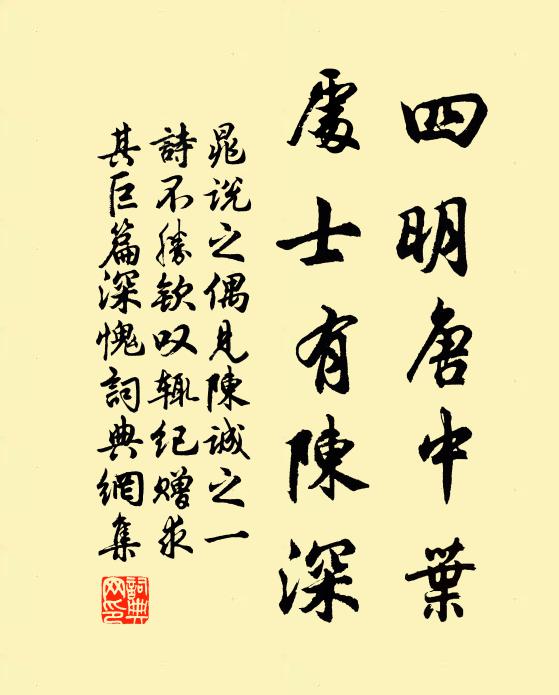 四明唐中葉
處士有陳深
晁說之偶見陳誠之一
詩不勝欽叹輒纪贈求
其巨篇深愧詞典網集